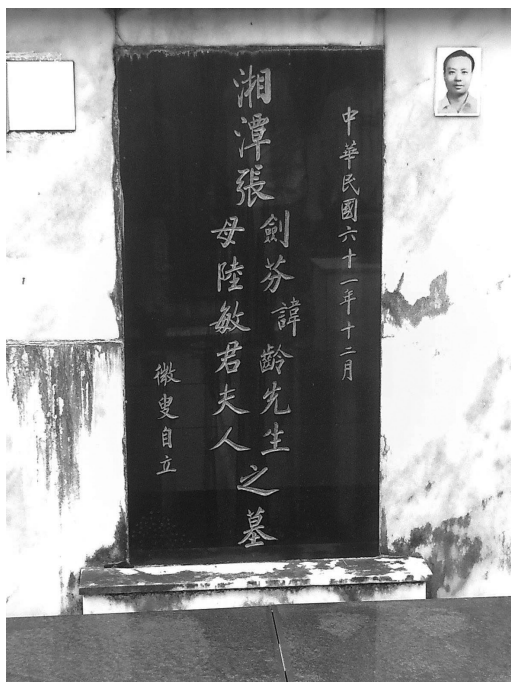 中華民國六十一年十二月
湘潭張
劍芬諱齡先生
母陸敏君夫人
之墓
徵叟自立